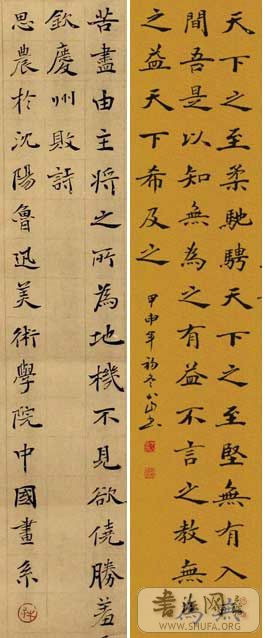 天下之至柔馳騁天下之至堅無有入無
間吾是以知無為之有益不言之教無為
之益天下希及之
甲申年
苦盡由主將之所為地機不見欲僥勝羞
欽慶州敗詩
思農於沈陽魯迅美術學院中國畫系
书法网
WWW.SHUFA.ORG